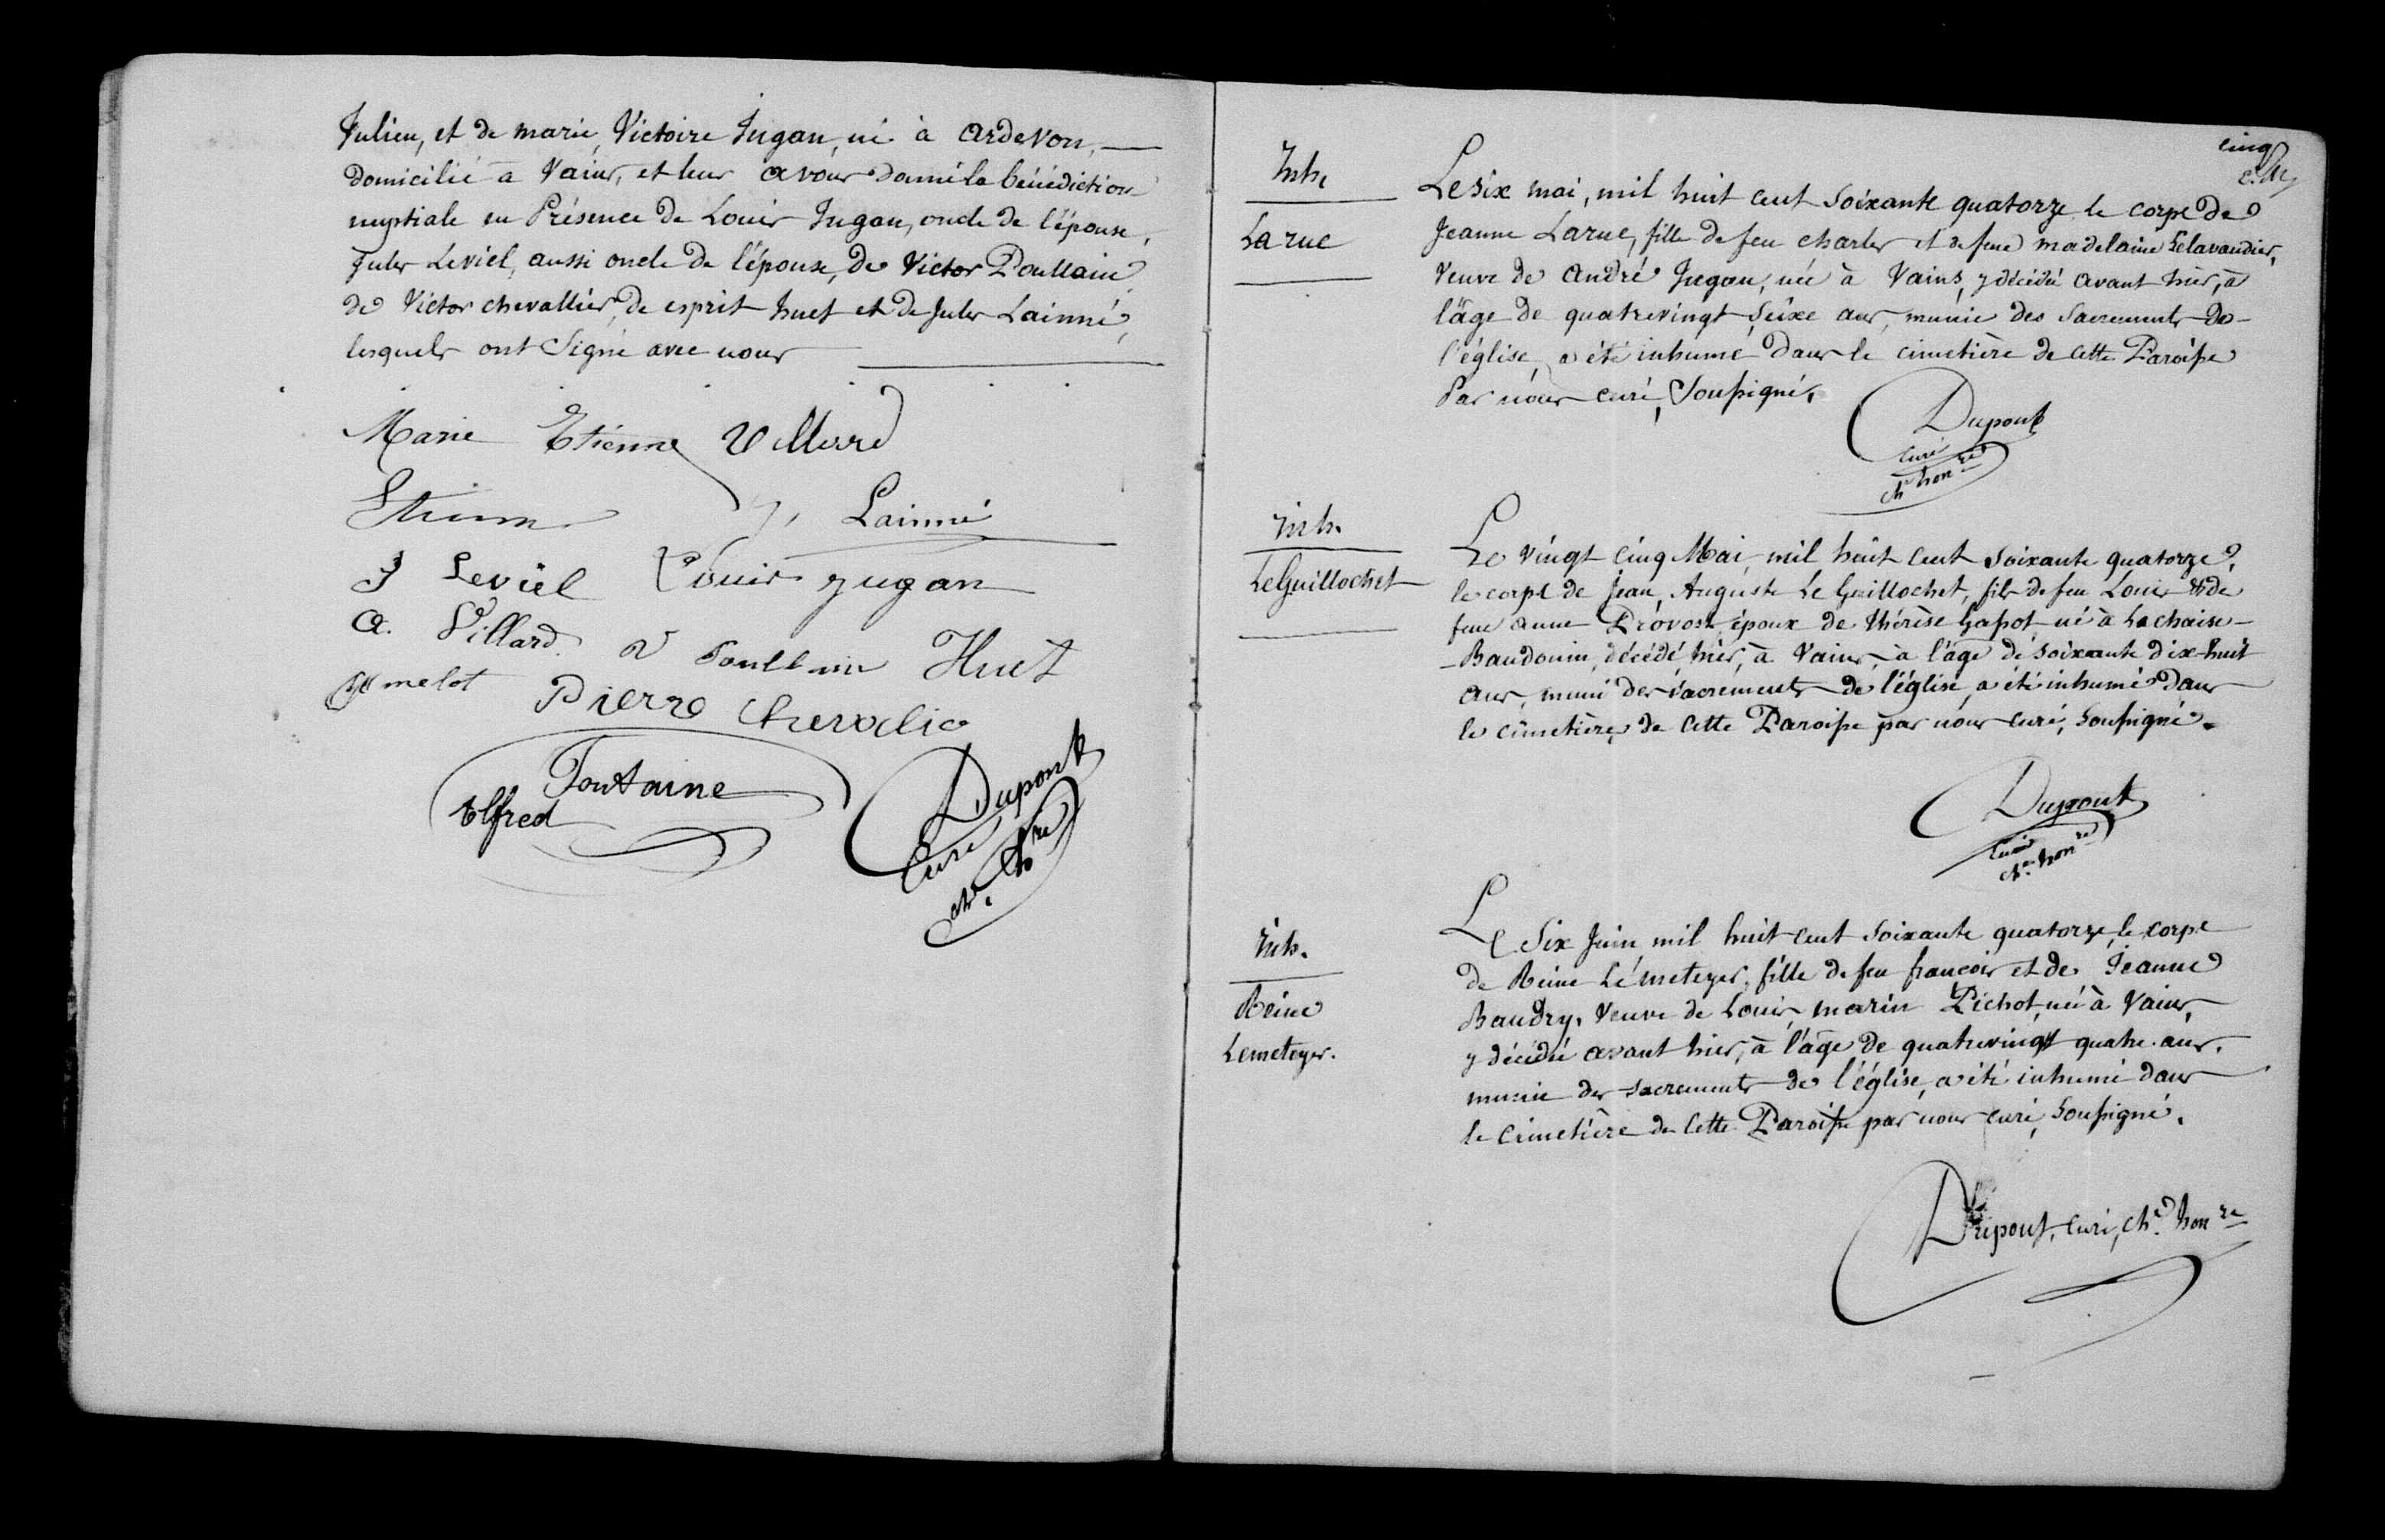 Julien, et de marie, Victoire Jugan, né à ardevon,
domicilié à Vains, et leur avons donné la bénédiction
nuptiale en Présence de Louis Jugan, oncle de l'épouse,
Jules Leviel, aussi oncle de l'épouse, de Victor Poullain,
de Victor chevallier, de esprit huet et de Jules Lainné,
lesquels ont Signé avec nous
Marie Etienne V Morel
Etienne J. Lainné
J Leviel Louis jugan
A. Villard V Poullain Huet
hamelot Pierre Chevalie
Fontaine
Alfred
Dupont
Curé
ch. hre
cinq
Inh.
Larue
Le six mai, mil huit cent soixante quatorze le corps de
Jeanne Larue, fille de feu charles et de feue madelaine Delavaudier,
Veuve de André Jugan, née à Vains, y décédée avant hier, à
l'âge de quatrevingt Seize ans, munie des Sacrements de
l'église, a été inhumé dans le cimetière de cette Paroisse
Par nous curé, Soussigné.
Dupont
Curé
ch. honre
Inh.
LeGuillochet
Le vingt cinq Mai, mil huit cent soixante quatorze,
le corps de Jean, Auguste Le Guillochet, fils de feu Louis et de
feue anne Provost, époux de thérèse Gapot né à Lachaise-
-Baudouin, décédé, hier, à Vains, à l'âge de soixante dix-huit
ans, muni des sacrements de l'église, a été inhumé dans
le cimetière de cette Paroisse par nous curé, soussigné.
Dupont
Curé
ch. honre
Inh.
Reine
Lemeteyer.
Le Six Juin, mil huit cent soixante quatorze, le corps
de Reine Lémeteyer, fille de feu françois et de Jeanne
Baudry, Veuve de Louis, marin Pichot, née à Vains,
y décédée avant hier, à l'âge de quatrevingt quatre ans.
munie des sacrements de l'église, a été inhumé dans
le cimetière de cette Paroisse par nous curé, soussigné.
Dupont, curé, che. honre